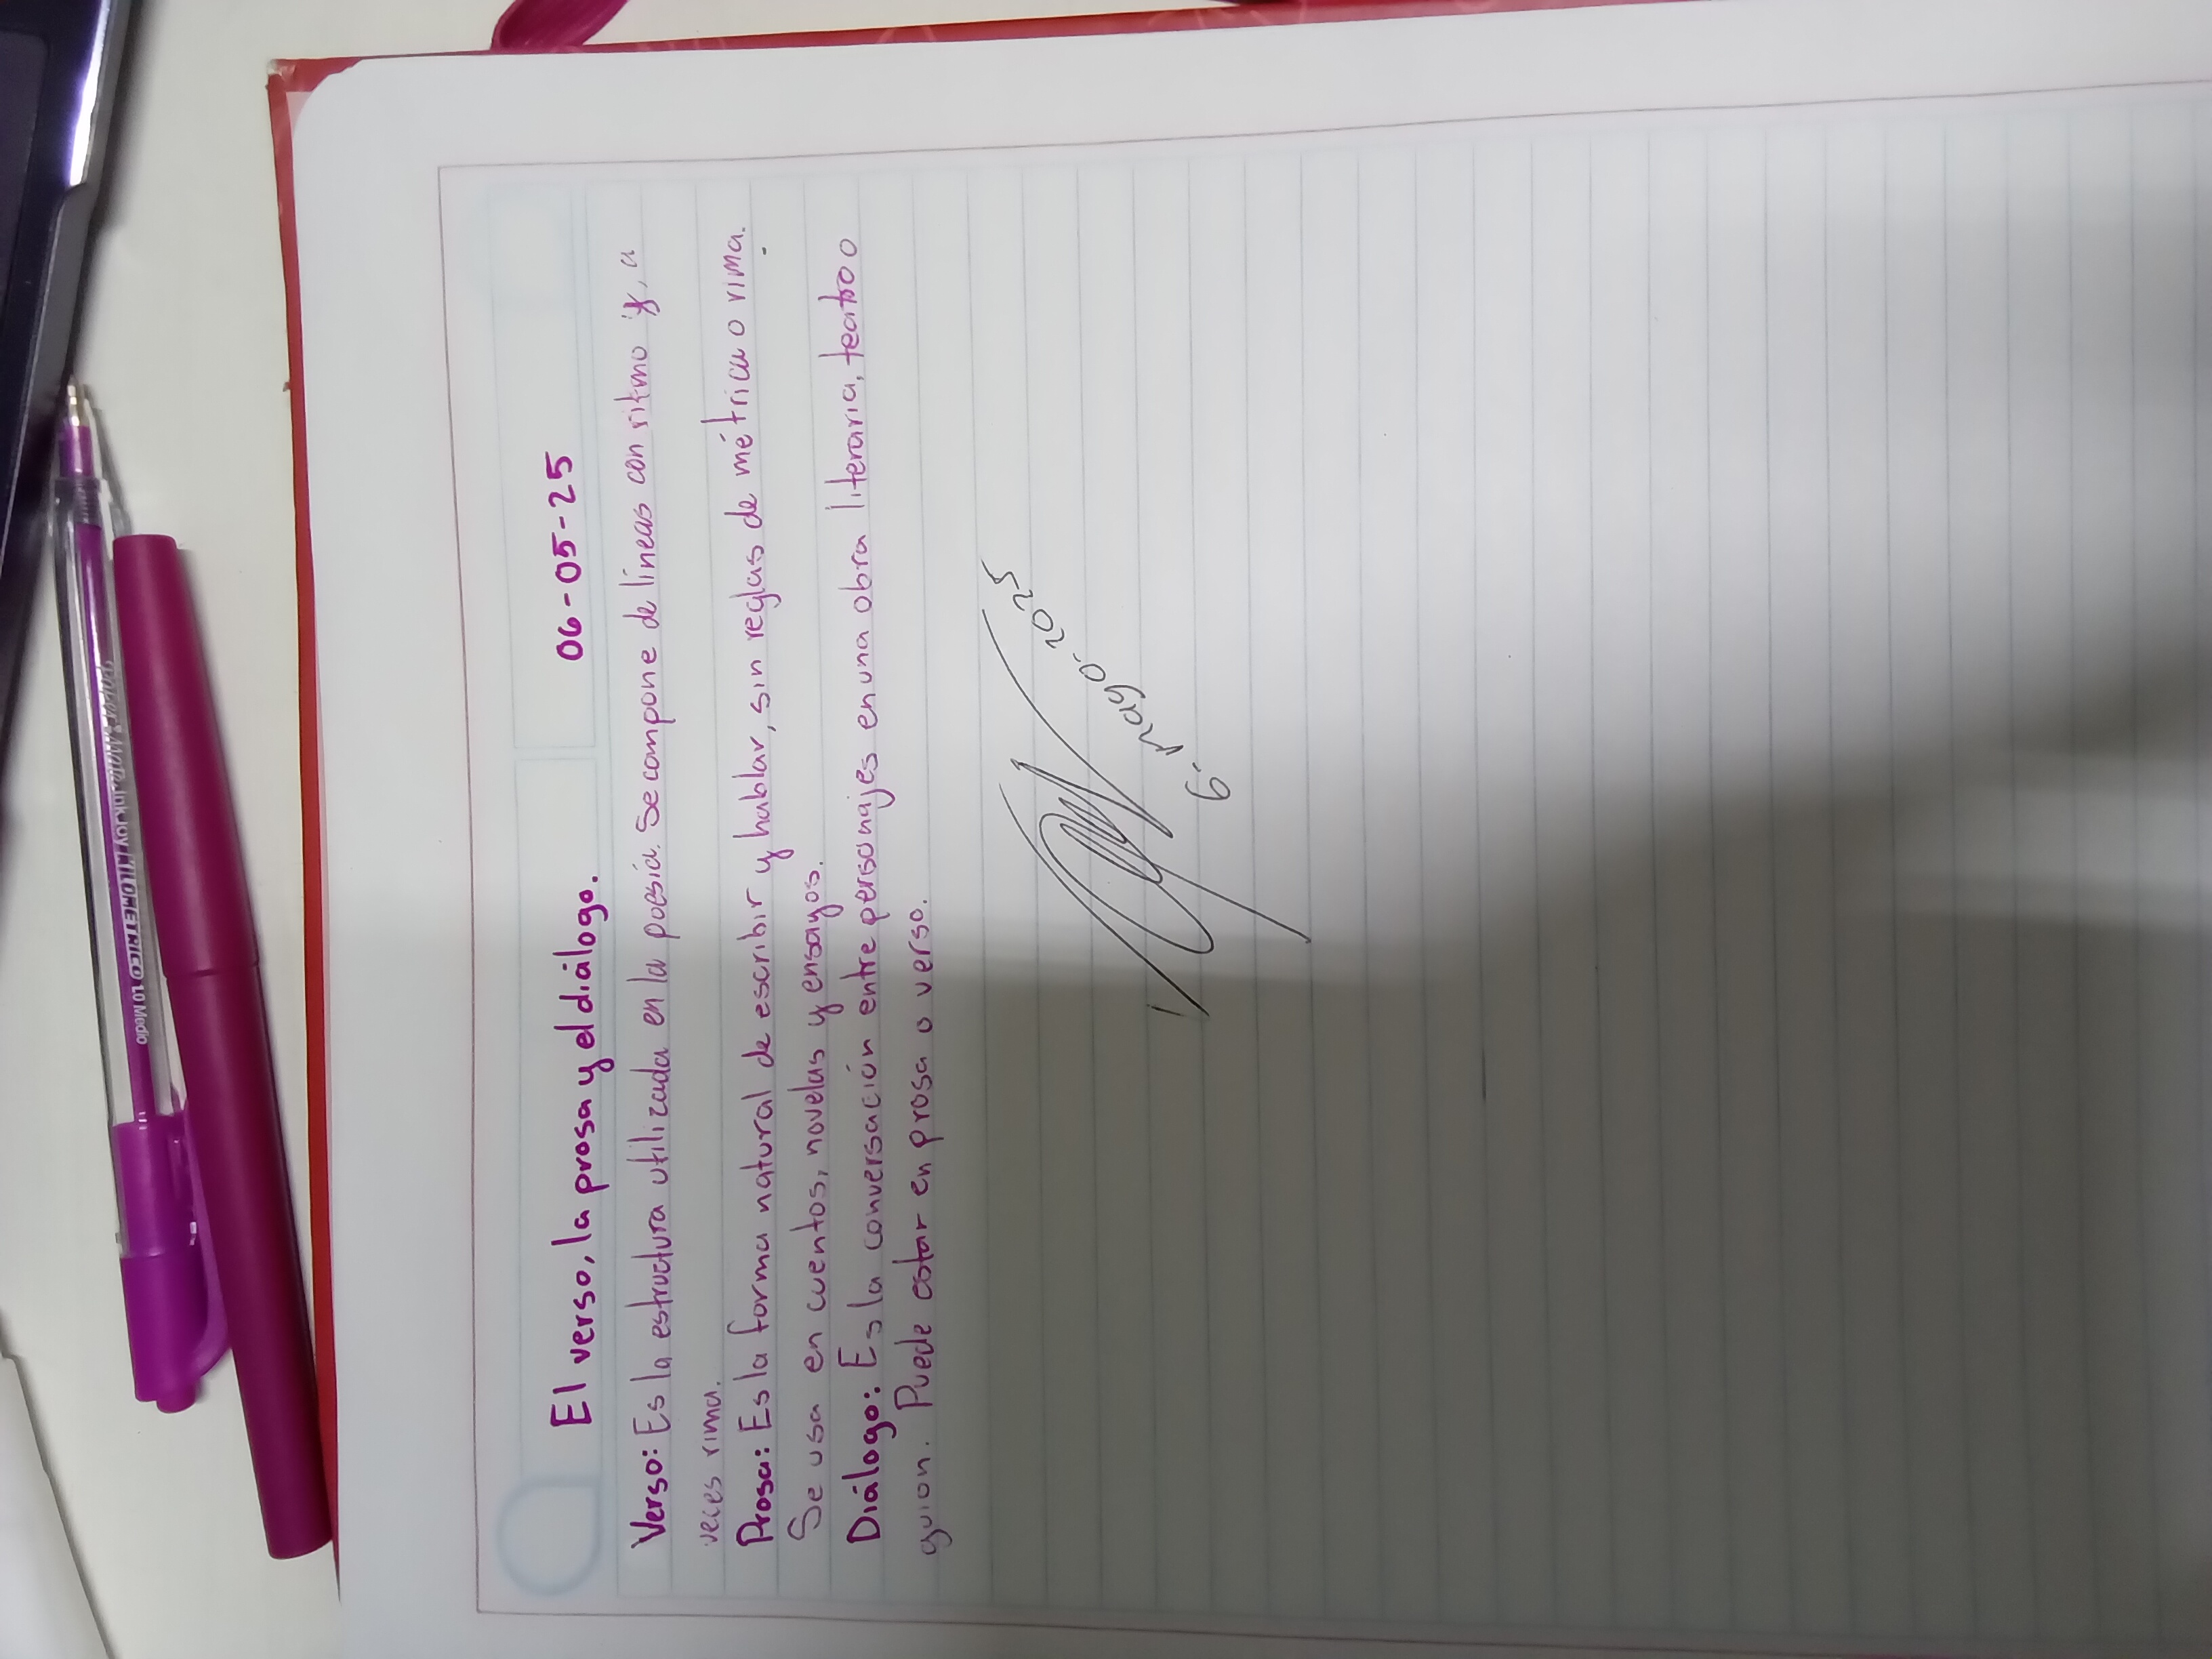 El verso, la prosa y el diálogo.
06-05-25
Verso: Es la estructura utilizada en la poesía. Se compone de líneas con ritmo y, a
veces rima.
Prosa: Es la forma natural de escribir y hablar, sin reglas de métrica o rima.
Se usa en cuentos, novelas y ensayos.
Diálogo: Es la conversación entre personajes en una obra literaria, teatro o
guion. Puede estar en prosa o verso.
6-mayo-2025
Paper Mate InkJoy KILOMETRICO 1.0 Medio